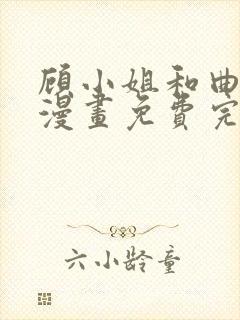 顾小姐和曲
漫畫免費完
六小龄童